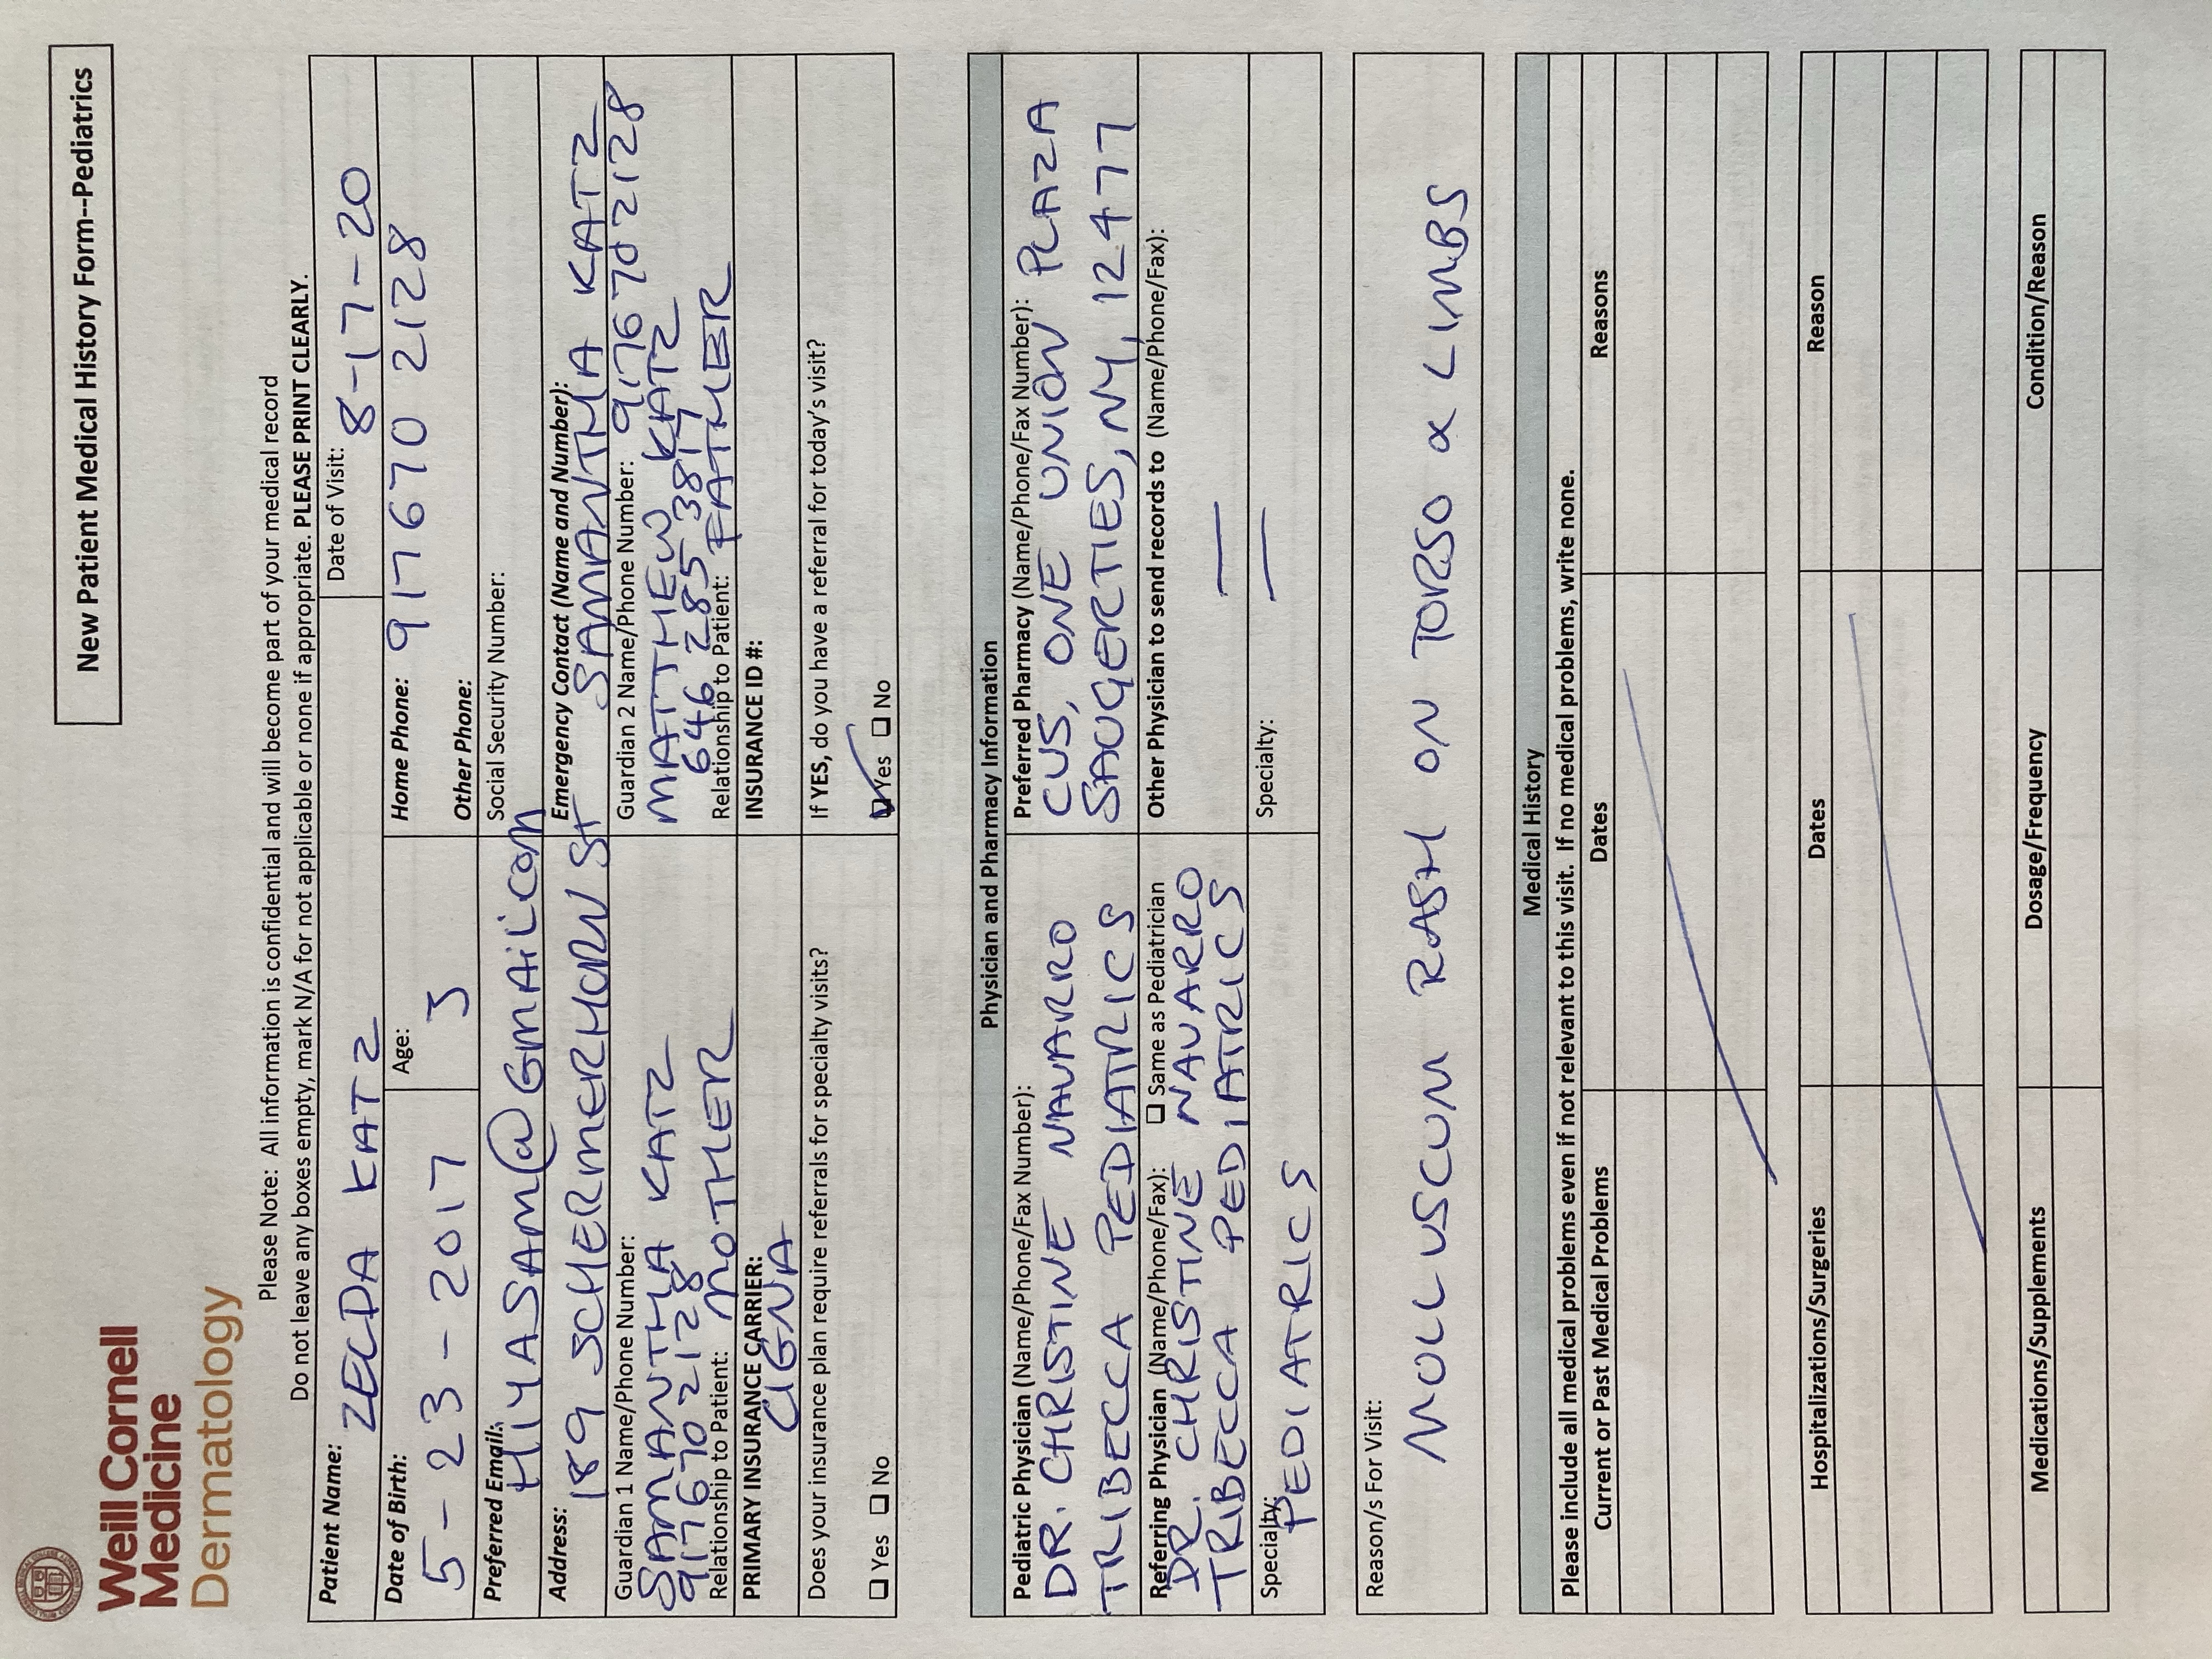 New Patient Medical History Form--Pediatrics
Weill Cornell
Medicine
Dermatology
Please Note: All information is confidential and will become part of your medical record
Do not leave any boxes empty, mark N/A for not applicable or none if appropriate. PLEASE PRINT CLEARLY.
Patient Name: ZELDA KATZ
Date of Visit: 8-17-20
Date of Birth: 5-23-2017
Age: 3
Home Phone: 917 670 2128
Other Phone:
Preferred Email: HIYASAM@GMAIL.COM
Social Security Number:
Address: 189 SCHERMERHORN ST
Emergency Contact (Name and Number): SAMANTHA KATZ
917 670 2128
Guardian 1 Name/Phone Number:
SAMANTHA KATZ
917 670 2128
Relationship to Patient: MOTHER
Guardian 2 Name/Phone Number:
MATTHEW KATZ
646 285 3817
Relationship to Patient: FATHER
PRIMARY INSURANCE CARRIER:
CIGNA
INSURANCE ID #:
Does your insurance plan require referrals for specialty visits?
Yes No
If YES, do you have a referral for today's visit?
Yes No
Physician and Pharmacy Information
Pediatric Physician (Name/Phone/Fax Number):
DR. CHRISTINE NAVARRO
TRIBECCA PEDIATRICS
Preferred Pharmacy (Name/Phone/Fax Number):
CVS, ONE UNION PLAZA
SAUGERTIES, NY, 12477
Referring Physician (Name/Phone/Fax): Same as Pediatrician
DR. CHRISTINE NAVARRO
TRIBECCA PEDIATRICS
Other Physician to send records to (Name/Phone/Fax):
—
Specialty:
PEDIATRICS
Specialty:
—
Reason/s For Visit:
MOLLUSCUM RASH ON TORSO & LIMBS
Medical History
Please include all medical problems even if not relevant to this visit. If no medical problems, write none.
Current or Past Medical Problems Dates Reasons
Hospitalizations/Surgeries Dates Reason
Medications/Supplements Dosage/Frequency Condition/Reason